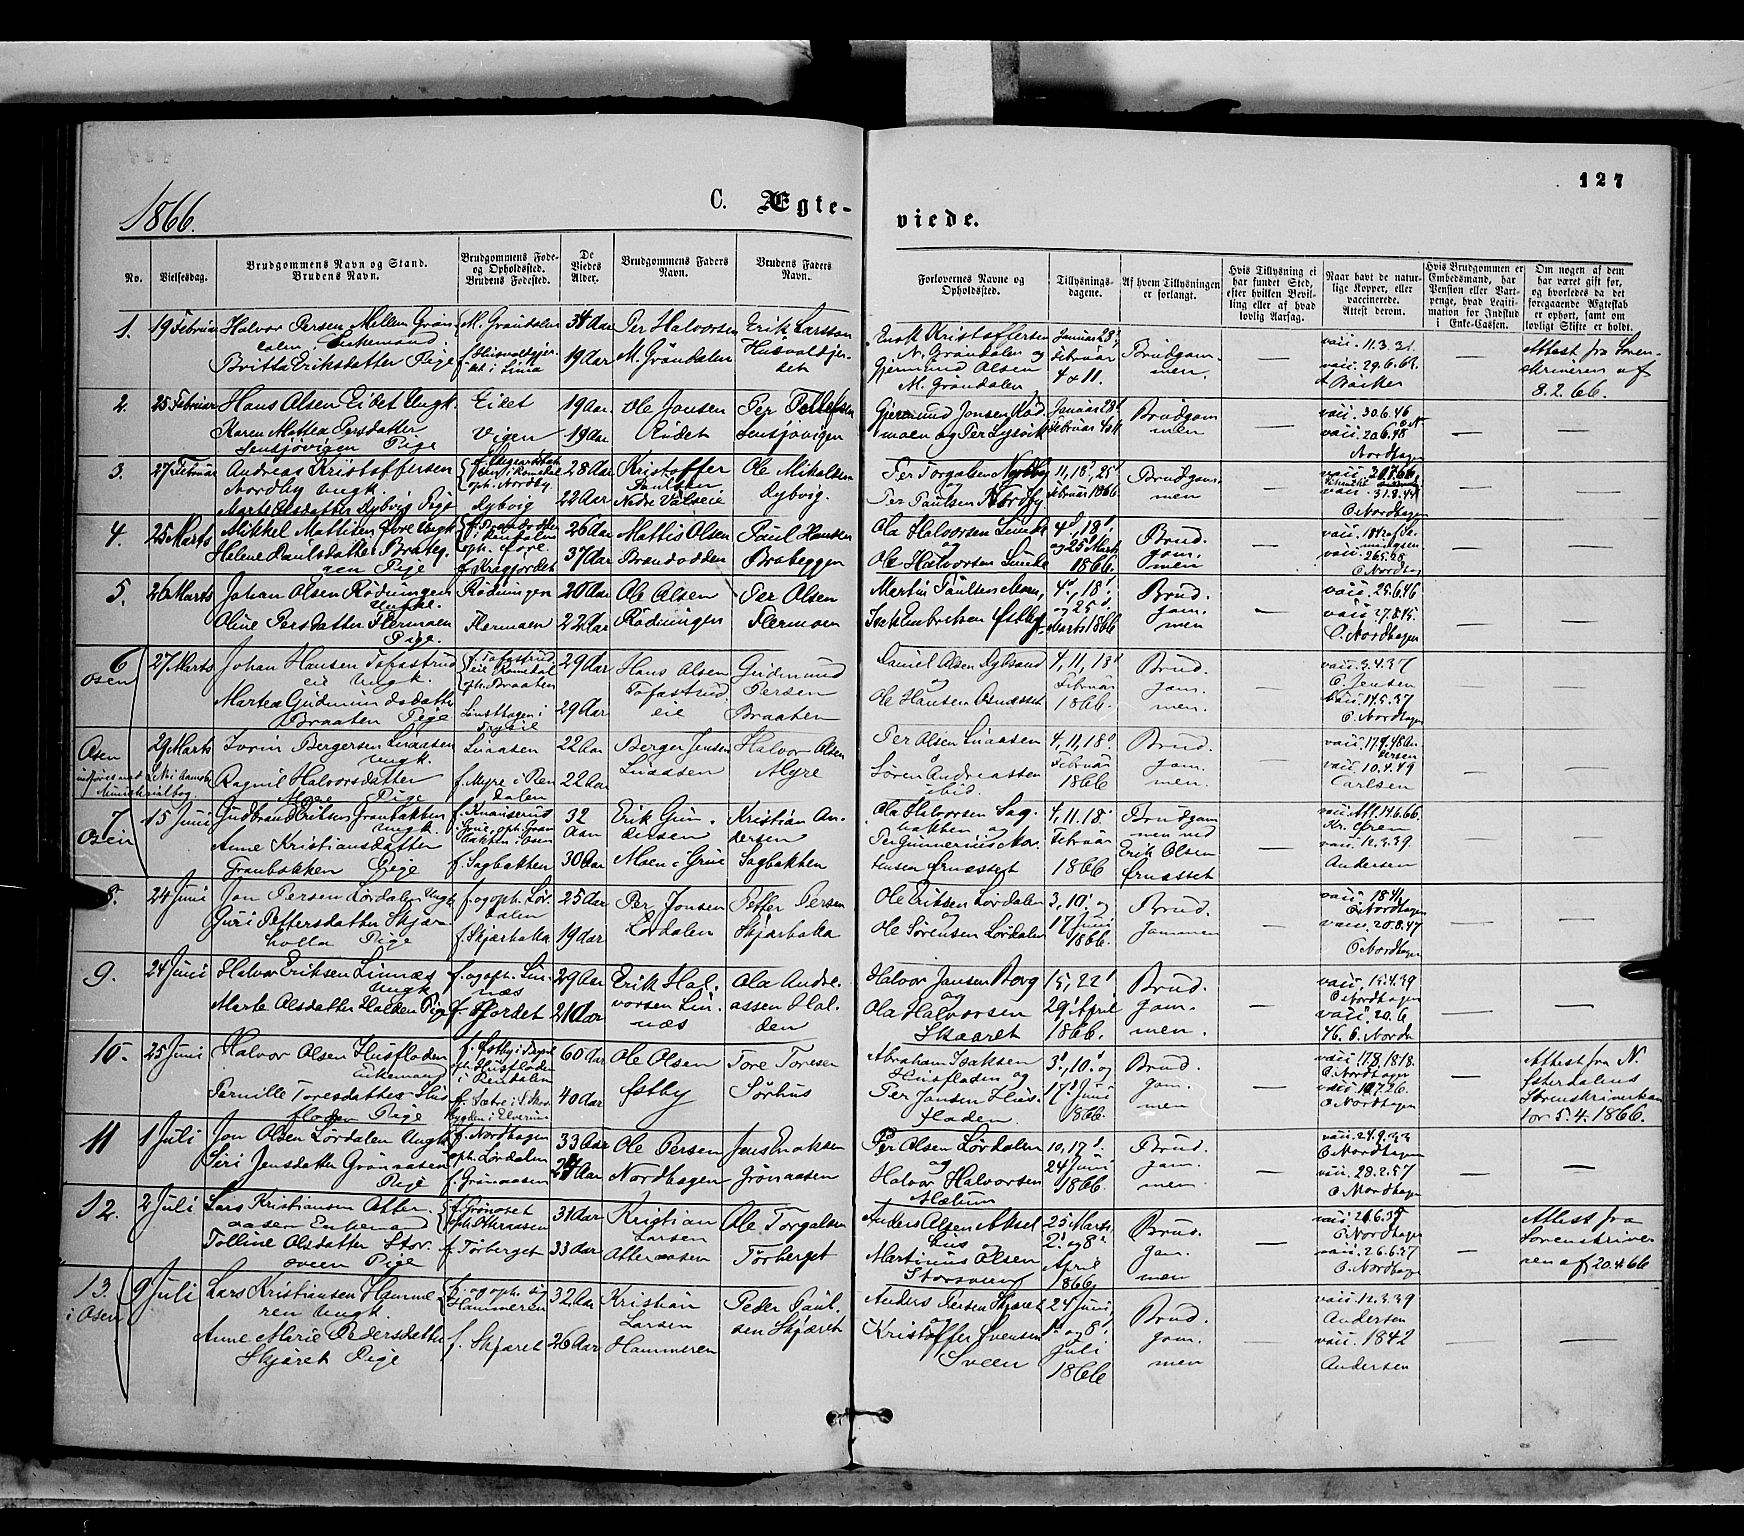 127
1866.
C. Ægte-
viede.
No.
Vielsesdag.
Brudgommens Navn og Stand.
Brudens Navn.
Brudgommens Føde-
og Opholdssted.
Brudens Fødested.
De
Viedes
Alder.
Brudgommens Faders
Navn.
Brudens Faders
Navn.
Forlovernes Navne og
Opholdssted.
Tillysnings-
dagene.
Af hvem Tillysningen
er forlangt.
Hvis Tillysning ei
har fundet Sted,
efter hvilken Bevil-
ling eller af hvad
lovlig Aarsag.
Naar havt de natur-
lige Kopper, eller
vaccinerede.
Attest derom.
Hvis Brudgommen er
Embedsmand, har
Pension eller Vart-
penge, hvad Legiti-
mation for Indskud
i Enke-Cassen.
Om nogen af dem
har været gift før,
og hvorledes da det
foregaaende Ægteskab
er ophørt, samt om
lovligt Skifte er holdt.
1.
19 Februar
Halvor Persen Mellem Grøn-
dalen Enkemand
Britta Eriksdatter Pige
M. Grøndalen
34 Aar
19 Aar
Per Halvorsen
M. Grøndalen
Erik Larssen
Kristoffersen
N. Grøndalen og
Gjermund Olsen
M. Grøndalen
Januar 28
Februar
4 & 11.
Brudgom-
men.
—
vaii. 11.3.31.
vaii. 29.6.62.
—
Attest fra Soren-
skriveren af
8.2.66.
2.
25 Februar
Hans Olsen Eidet Ungk.
Karen Mathea Persdatter
Sensjøvigen Pige
Eidet
Vigen
19 Aar
19 Aar
Ole Jonsen
Eidet
Per
Sensjøvigen
Gjermund Jonsen
moen og Per
Januar 28
Februar 4 & 11
Brudgom
men
—
vaii. 30.6.46
vaii. 20.6.48
Nordhagen
—
3.
27 Februar
Andreas Kristoffersen
Nordby Ungk.
Rybvig Pige
oph. Nordby
Rybvig
28 Aar
22 Aar
Kristoffer
Paulsen
Ole Mikalsen
Rybvig.
Per Torgalsen Nordby
og
Per Paulsen Nordby
11, 18, 25
Februar 1866
Brudgom-
men
—
vaii. 31.8.44
O Nordhagen
—
4.
25 Marts
Mikkel Mathisen Øvre Ungk
Helene Paulsdatter Brateg-
gen Pige
oph. Øvre.
f. Kragfjordet
26 Aar
37 Aar
Mattis Olsen
Brandvolden
Paul Hansen
Brateggen
Ola Halvorsen
og
Ole Halvorsen
4, 18
og 25 Marts
1866.
Brud.
gom.
men
—
vaii.
O. Nordhag
—
5.
26 Marts
Johan Olsen Rødningen
Ungk.
Oline Persdatter Flermoen
Pige.
Rødningen
Flermoen
20 Aar
22 Aar
Ole Olsen
Rødningen
Per Olsen
Flermoen
Martin Paulsen Moen,
Østby
4, 18
og 25
Marts 1866
Brud.
gom.
men
—
vaii. 25.6.46
vaii. 27.8.45.
O. Nordhagen
—
6
Osen
27 Marts
Johan Hansen Tofastrud
eie Ungk.
Martea Gudmundsdatter
Braaten Pige
f. Tofastrud
oph. Braaten
Trysil
29 Aar
29 Aar
Hans Olsen
Tofastrud
eie
Gudmund
Persen
Braaten
Daniel Olsen
og
Ole Hansen Osnæsset
4, 11, 18
Februar
1866.
Brud.
gom.
men.
—
vaii. 3.4.37
C. Jensen
vaii. 14.5.37
O. Nordhagen
—
Osen
29 Marts
Bergersen Linaasen
Ungk.
Ragnil Halvorsdatter
Myre Pige
Linaasen
f. Myre i Ren
dalen
22 Aar
22 Aar
Berger Jensen
Linaasen
Halvor Olsen
Myre
Per Olsen Linaasen
&
Søren Andreassen
ibid.
4, 11, 18
Februar
1866
Brud.
gom.
men.
—
vaii. 17.9.48 An
dersen
vaii. 10.4.49
Carlsen
—
7
Osen
15 Juni
Gudbrand Eriksen Granbakken
Ungk
Anne Kristiansdatter
Granbakken Pige
f. Sagbakken
32
Aar
30 Aar
Erik Gun-
dersen
Moen i Grue
Kristian An-
dersen
Sagbakken
Ola Halvorsen Sag-
bakken og
Per Gunnerius Mor-
tensen Ørnæsset
4, 11, 18
Februar
1866
Brudgom
men ved
Erik Olsen
Ørnæsset
—
vaii. Att. 14.6.66.
vaii. 12.3.39
Andersen
—
8.
24 Juni
Jon Persen Lørdalen Ungk
Guri Pettersdatter Skjær
bolla Pige
f. og oph. Lør-
dalen
f. Skjærbolla
25 Aar
19 Aar
Per Jonsen
Lørdalen
Petter Persen
Skjærbolla
Ole Eriksen Lørdalen
og
Ole Sørensen Lørdalen
3, 10 og
17 Juni
1866.
Brud.
gommen
—
vaii. 1841
O Nordhagen
vaii. 20.8.47
O Nordhagen
—
9.
24 Juni
Halvor Eriksen Linnæs
Ungk
Marte Olsdatter Halden Pige
f. og oph. Lin-
næs
f. Fjordet
29 Aar
21 Aar
Erik Hal-
vorsen Lin-
næs
Ola Andre-
assen Hal-
den
Halvor Jansen Borg
og
Ola Halvorsen
Skaaret
15, 22
29 April
1866.
Brud.
gom.
men.
—
vaii. 15.4.39
O Nordhagen
vaii. 20.6
46. O. Nordh
—
10.
25 Juni
Halvor Olsen Husfloden
Enkemand
Pernille Toresdatter Hus
floden Pige
f. Østby i Trysil
oph. Husfloden
i Rendalen
bygden i Elverum
60 Aar
40 Aar
Ole Olsen
Østby
Tore Toresen
Sørhus
Abraham Isaksen
Husfloden og
Per Jansen Hus-
floden.
3, 10 og
17 Juni
1866.
Brud.
gom.
men
—
vaii. 17.8.1818.
O. Nordhagen
vaii. 10.7.26.
O Nordhagen
—
Attest fra N.
Østerdalens
Sorenskriverkon
tor 5.4.1866.
11
1 Juli
Jon Olsen Lørdalen Ungk
Siri Jensdatter Grønaasen
Pige
f. Nordhagen
oph. Lørdalen
f. Grønaasen
33 Aar
24 Aar
Ole Persen
Nordhagen
Jens Enaksen
Grønaasen
Per Olsen Lørdalen
og
Halvor Halvorsen
Mælum
10, 17
24 Juni
1866.
Brud.
gom.
men.
—
vaii. 24.9.33
O Nordhagen
vaii. 28.2.57
O Nordhagen
—
12.
2 Juli
Lars Kristiansen Otter-
aasen Enkemand
Tolline Olsdatter Stor-
sveen Pige
f. Grønoset
oph. Otteraasen
f. Tørberget
31 Aar
33 Aar
Kristian
Larsen
Otteraasen
Ole Torgalsen
Tørberget
Anders Olsen Akset
hus og
Martinus Olsen
Storsveen
25 Marts
2 og 8
April
1866
Brud.
gom.
men
—
vaii. 21.6.35
O Nordhagen
vaii. 26.6.37
O. Nordhagen
—
Attest fra
Sorenskrive-
ren af 20.4.66
13.
i Osen
9 Juli
Lars Kristiansen Hamme-
ren Ungk.
Anne Marie Pedersdatter
Skjæret Pige
f. og oph. og
Hammeren
f. Skjæret
32 Aar
26 Aar
Kristian
Larsen
Hammeren
Peder Paul-
sen Skjæret
Anders Persen Skjæret
og
Kristoffer Svensen
Sveen
24 Juni,
1 og 8
Juli
1866
Brud.
gom.
men
—
vaii. 12.3.39
Andersen
vaii. 1842
Andersen
—
—